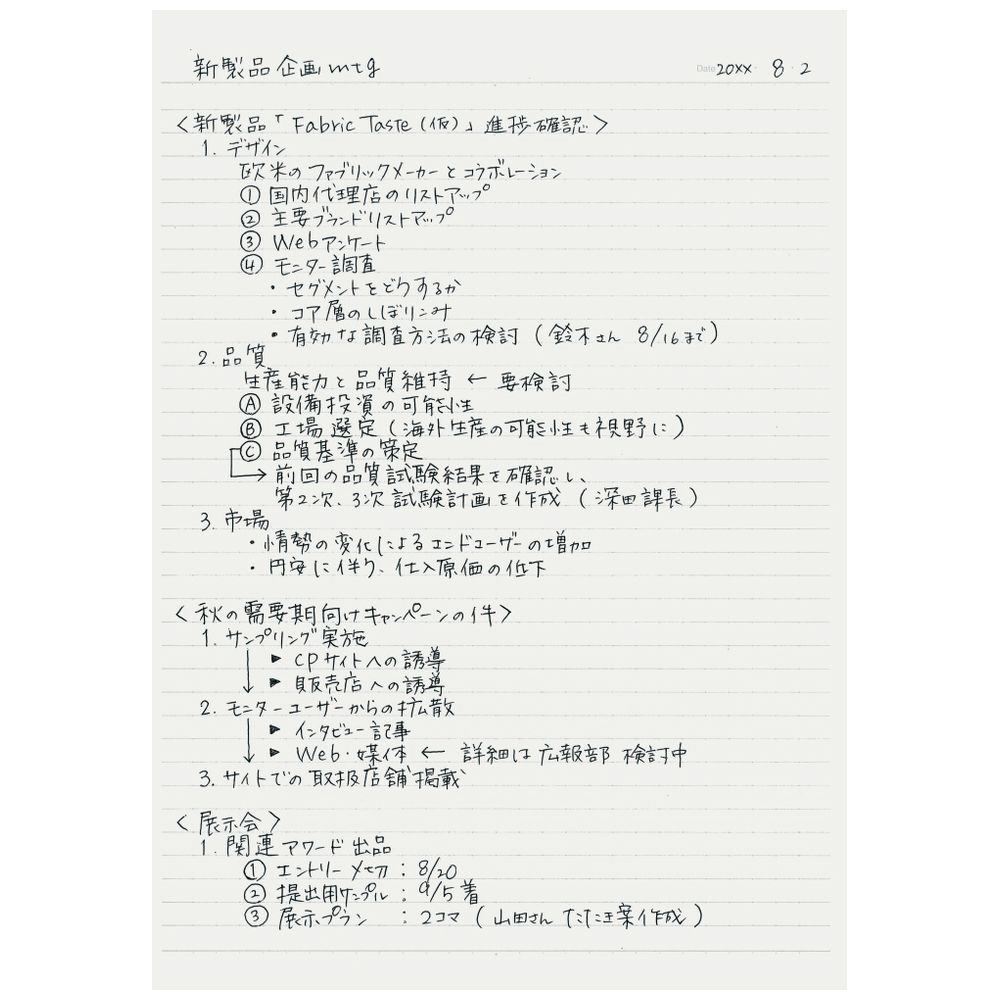 新製品企画mtg
Date 20XX · 8 · 2
<新製品「Fabric Taste(仮)」進捗確認>
1. デザイン
欧米のファブリックメーカーとコラボレーション
① 国内代理店のリストアップ
② 主要ブランドリストアップ
③ Webアンケート
④ モニター調査
・セグメントをどうするか
・コア層のしぼりこみ
・有効な調査方法の検討(鈴木さん 8/16まで)
2. 品質
生産能力と品質維持 ← 要検討
Ⓐ 設備投資の可能性
Ⓑ 工場選定(海外生産の可能性も視野に)
Ⓒ 品質基準の策定
→ 前回の品質試験結果を確認し、
第2次、3次試験計画を作成(深田課長)
3. 市場
・情勢の変化によるエンドユーザーの増加
・円安に伴り、仕入原価の低下
<秋の需要期向けキャンペーンの件>
1. サンプリング実施
▶ CPサイトへの誘導
▶ 販売店への誘導
2. モニターユーザーからの拡散
▶ インタビュー記事
▶ Web・媒体 ← 詳細は広報部 検討中
3. サイトでの取扱店舗掲載
<展示会>
1. 関連アワード出品
① エントリー〆切 : 8/20
② 提出用サンプル : 9/5着
③ 展示プラン : 2コマ(山田さん たたき案作成)